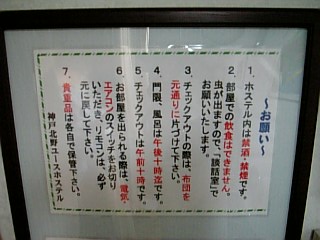 ～お願い～
1．ホステル内は禁酒・禁煙です。
2．部屋での飲食はできません。
虫が出ますので、「談話室」で
お願いいたします。
3．チェックアウトの際は、布団を
元通りに片づけて下さい。
4．門限、風呂は午後十時迄です。
5．チェックアウトは午前十時です。
6．お部屋を出られる際は、電気・
エアコンのスイッチをお切り
いただき、リモコンは、必ず
元に戻して下さい。
7．貴重品は各自で保管下さい。
神戸北野ユースホステル